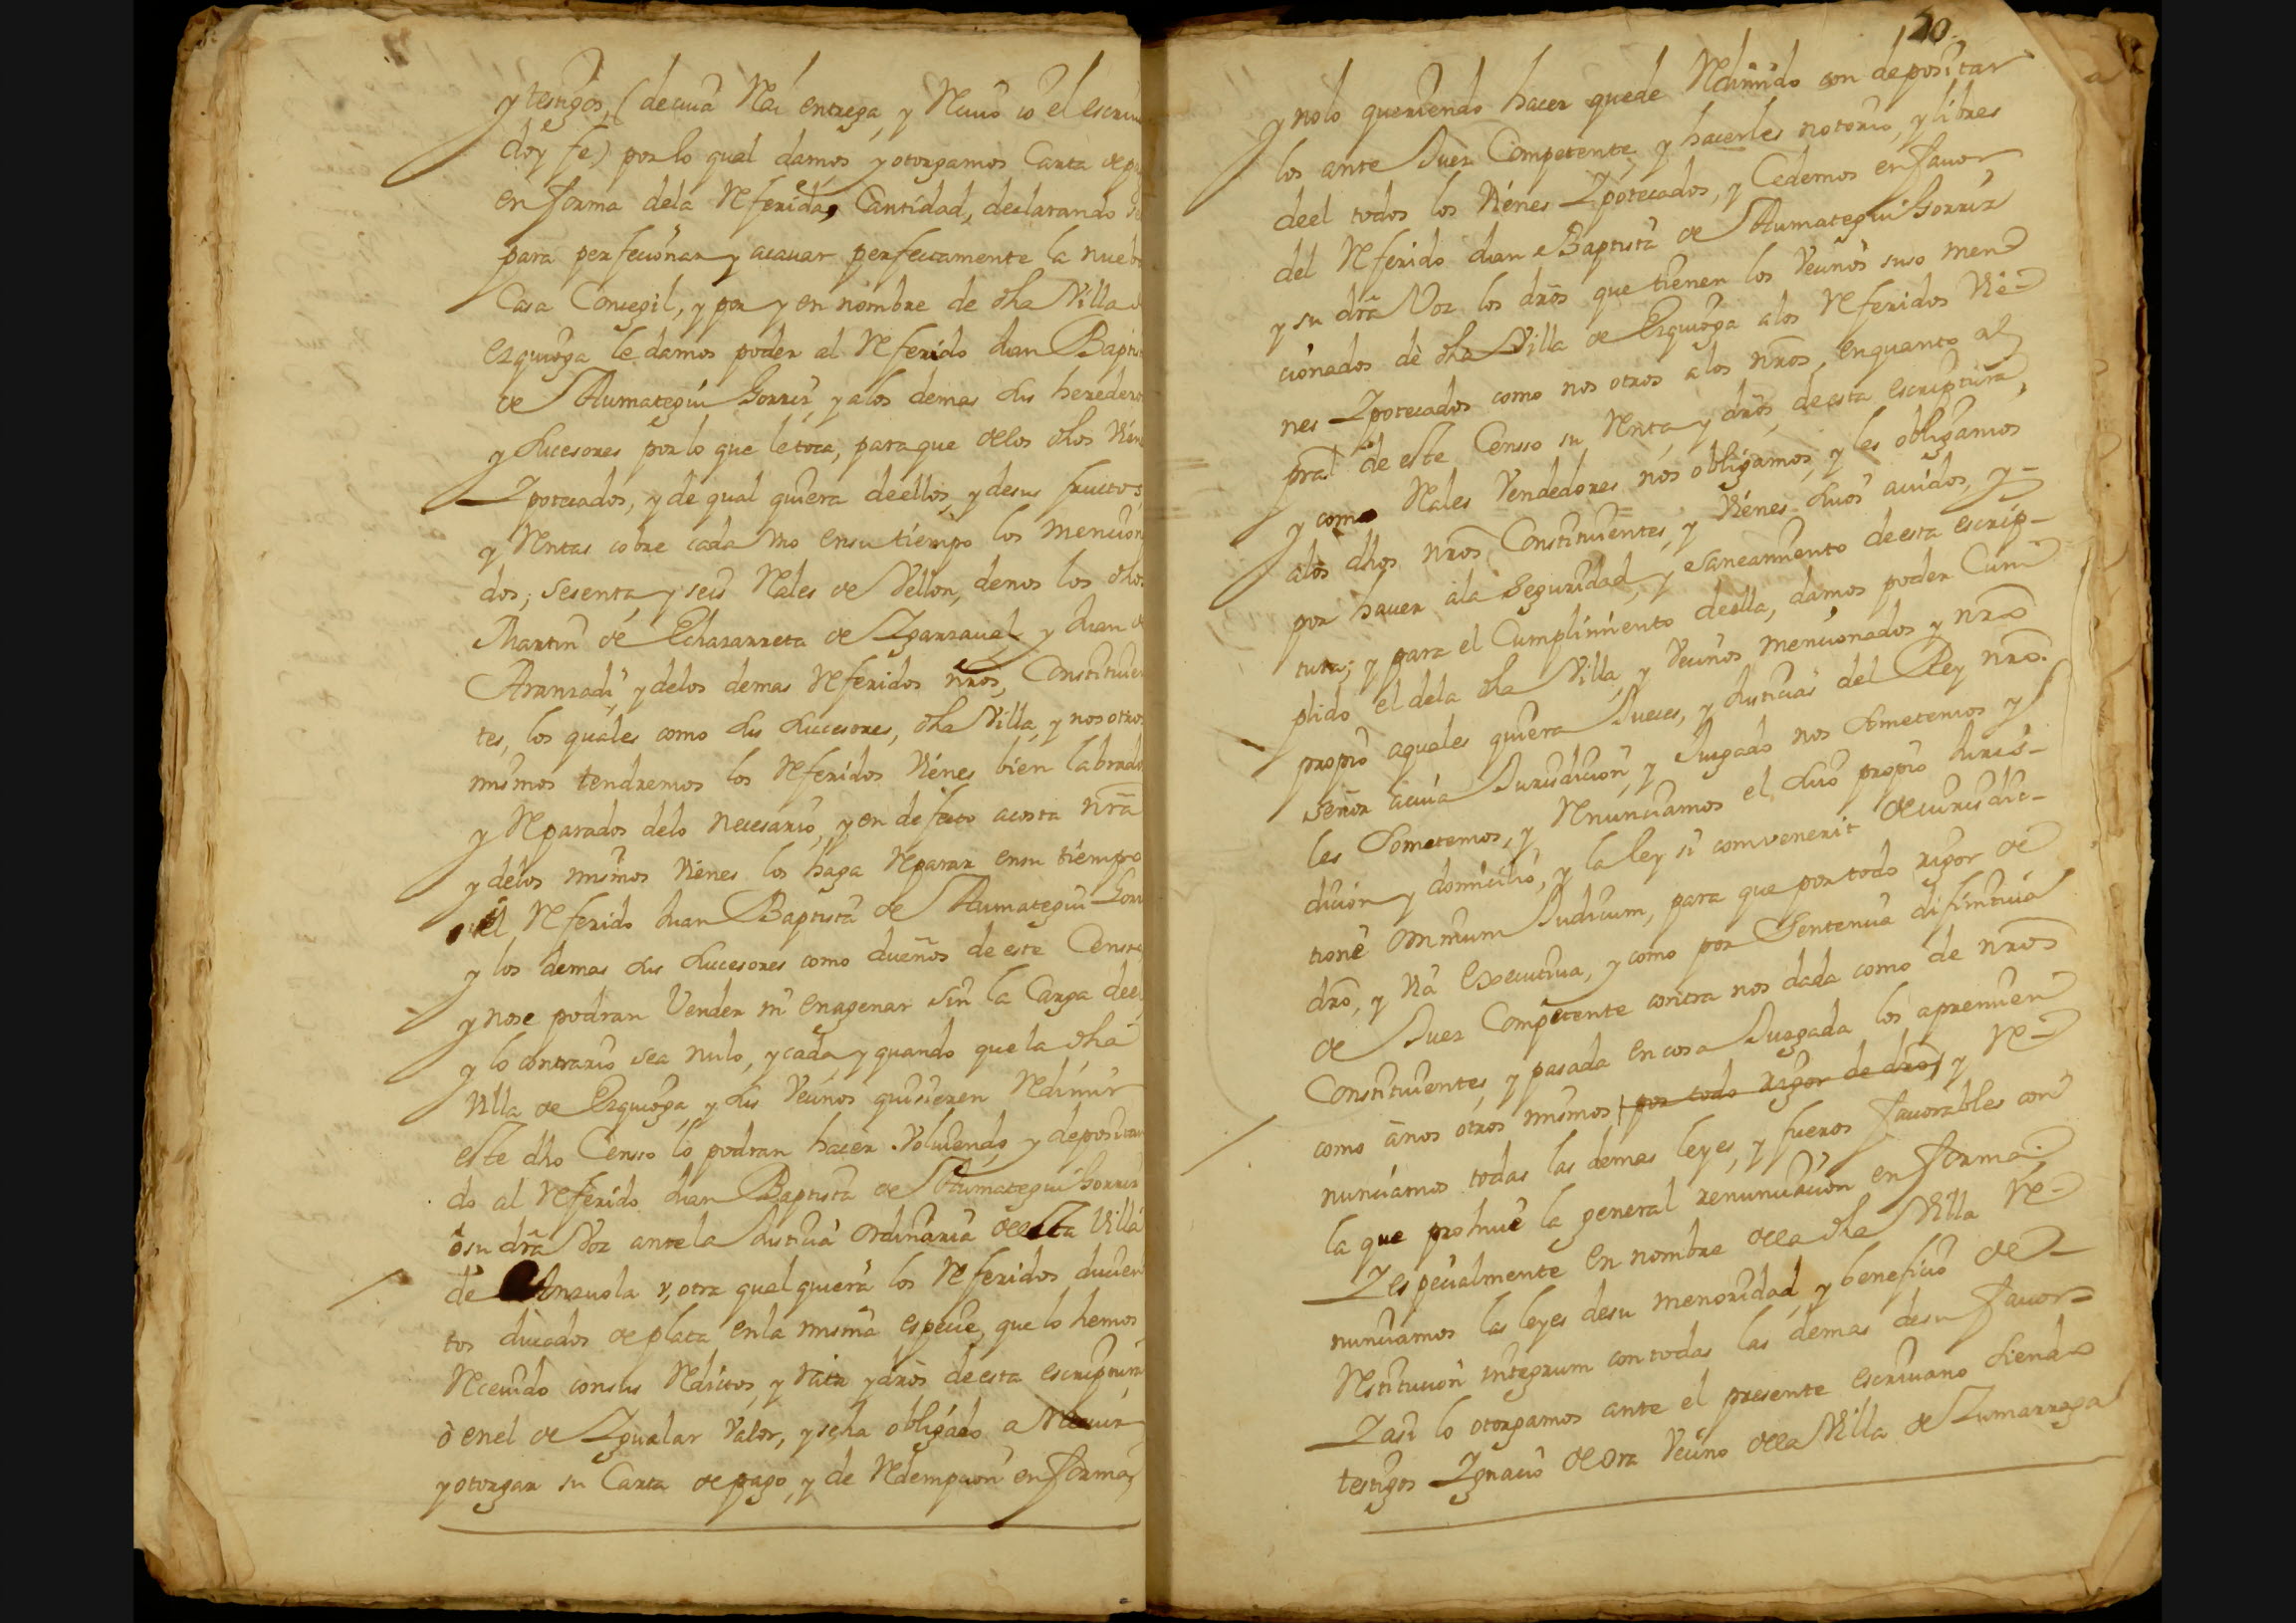 y testigos, (de cuia Real entrega, y Reciuo io el escriu
doy fe) por lo qual damos y otorgamos Carta de p
en forma dela Referida, Cantidad, declarando
para perfecionar y acauar perfectamente la nueb
Casa Concegil, y por y en nombre de dha Villa
ezquioga le damos poder al Referido Juan Bapti
de Aumategui Gorriz y alos demas sus heredero
y Sucesores por lo que le toca, para que delos dhos Vien
Ypotecados, y de qual quiera deellos, y desus fructos
y Rentas cobre cada vno ensu tiempo los mencion
dos, sesenta y seis Reales de Vellon, denos los dhos
Martin de Echazarreta de Yganzaual, y Juan
Aranzadi, y delos demas Referidos nros, Constituien
tes, los quales como sus Sucesores, dha Villa, y nos otros
mismos tendremos los Referidos Vienes bien labrado
y Reparados delo necesario, y en defecto acosta nra
y delos mismos Vienes los haga Reparar ensu tiempo
el Referido Juan Baptista de Aumategui Gorr
y los demas sus Sucesores como dueños de este Censso
y nose podran Vender ni enagenar Sin la Carga deel
y lo contrario sea nulo, y cada y quando que la dha
Villa de Ezquioga, y sus Vecinos quisieren Redimir
este dho Censso lo podran hacer Voluiendo y depositan
do al Referido Juan Baptista de Aumategui Gorriz
ò su dra Voz ante la Justicia Ordinaria de esta Villa
de Anzuola v, otra qual quiera los Referidos, ducien
tos ducados de plata enla misma especie, que lo hemos
Receuido consus Reditos, y rata y dros deesta escriptura
ò enel de Ygualar Valor, y seha obligado a Receuir
y otorgar su Carta de pago, y de Redempcion en forma,
20
y nolo queriendo hacer quede Redimido con depositar
los ante Juez Competente, y hacerles notorio, y libres
deel todos los Vienes Ypotecados, y Cedemos en fauor
del Referido Juan Baptista de Aumategui Gorriz
y su dra Voz los dros que tienen los Vecinos suso men
cionados de dha Villa de Ezquioga alos Referidos Vie
nes Ypotecados como nos otros a los nros, enquanto al
pral de este Censso su Renta, y dros, de esta escriptura,
y como Reales Vendedores nos obligamos, y les obligamos
alos dhos nros Constituientes, y Vienes Suios auidos, y
por hauer ala Seguridad, y saneamiento deesta escrip-
tura; y para el Cumplimiento deella, damos poder Cum
plido el dela dha Villa, y Vecinos mencionados y nro
propio aquales quiera Jueces, y Justicias del Rey nro.
señor acuia Jurisdicion, y Juzgado nos Sometemos y
les Sometemos, y Renunciamos el Suio propio Juris-
dicion y domicilio, y la ley si combenerit de jurisdic-
tione Omnium Judicum, para que por todo rigor de
dro, y Via Executiua, y como por Sentencia difinitiua
de Juez Competente contra nos dada como de nros
Constituientes, y pasada en cosa Juzgada los apremien
como ànos otros mismos por todo rigor de dro, y Re
nunciamos todas las demas leyes, y fueros fauorables con
la que prohiue la general renunciacion en forma;
Y especialmente en nombre dela dha Villa Re
nunciamos las leyes desu menoridad, y beneficio de
Restitucion integrum con todas las demas desu fauor
Y asi lo otorgamos ante el presente escriuano siendo
testigos Ygnacio de Ora Vecino dela Villa de Zumarraga